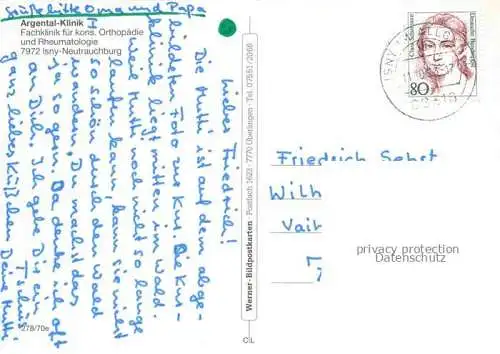 grüße bitte Oma und Papa
Argental-Klinik
Fachklinik für kons. Orthopädie
und Rheumatologie
7972 Isny-Neutrauchburg
Lieber Friedrich!
Die Mutti ist auf dem abge-
bildeten Foto zur Kur. Die Kur-
klinik liegt mitten im Wald.
Weil Mutti noch nicht so lange
laufen kann, kann sie nicht
so schön durch den Wald
wandern. Du machst das
ja so gern. Da denke ich oft
an Dich. Ich gebe Dir ein
ganz liebes Küßchen Deine Mutti
Tschüs
278/70e
Werner-Bildpostkarten · Postfach 1622 · 7770 Überlingen · Tel. 07551/2066
C\L
Deutsche Bundespost
80
Friedrich
Wilh
privacy protection
Datenschutz